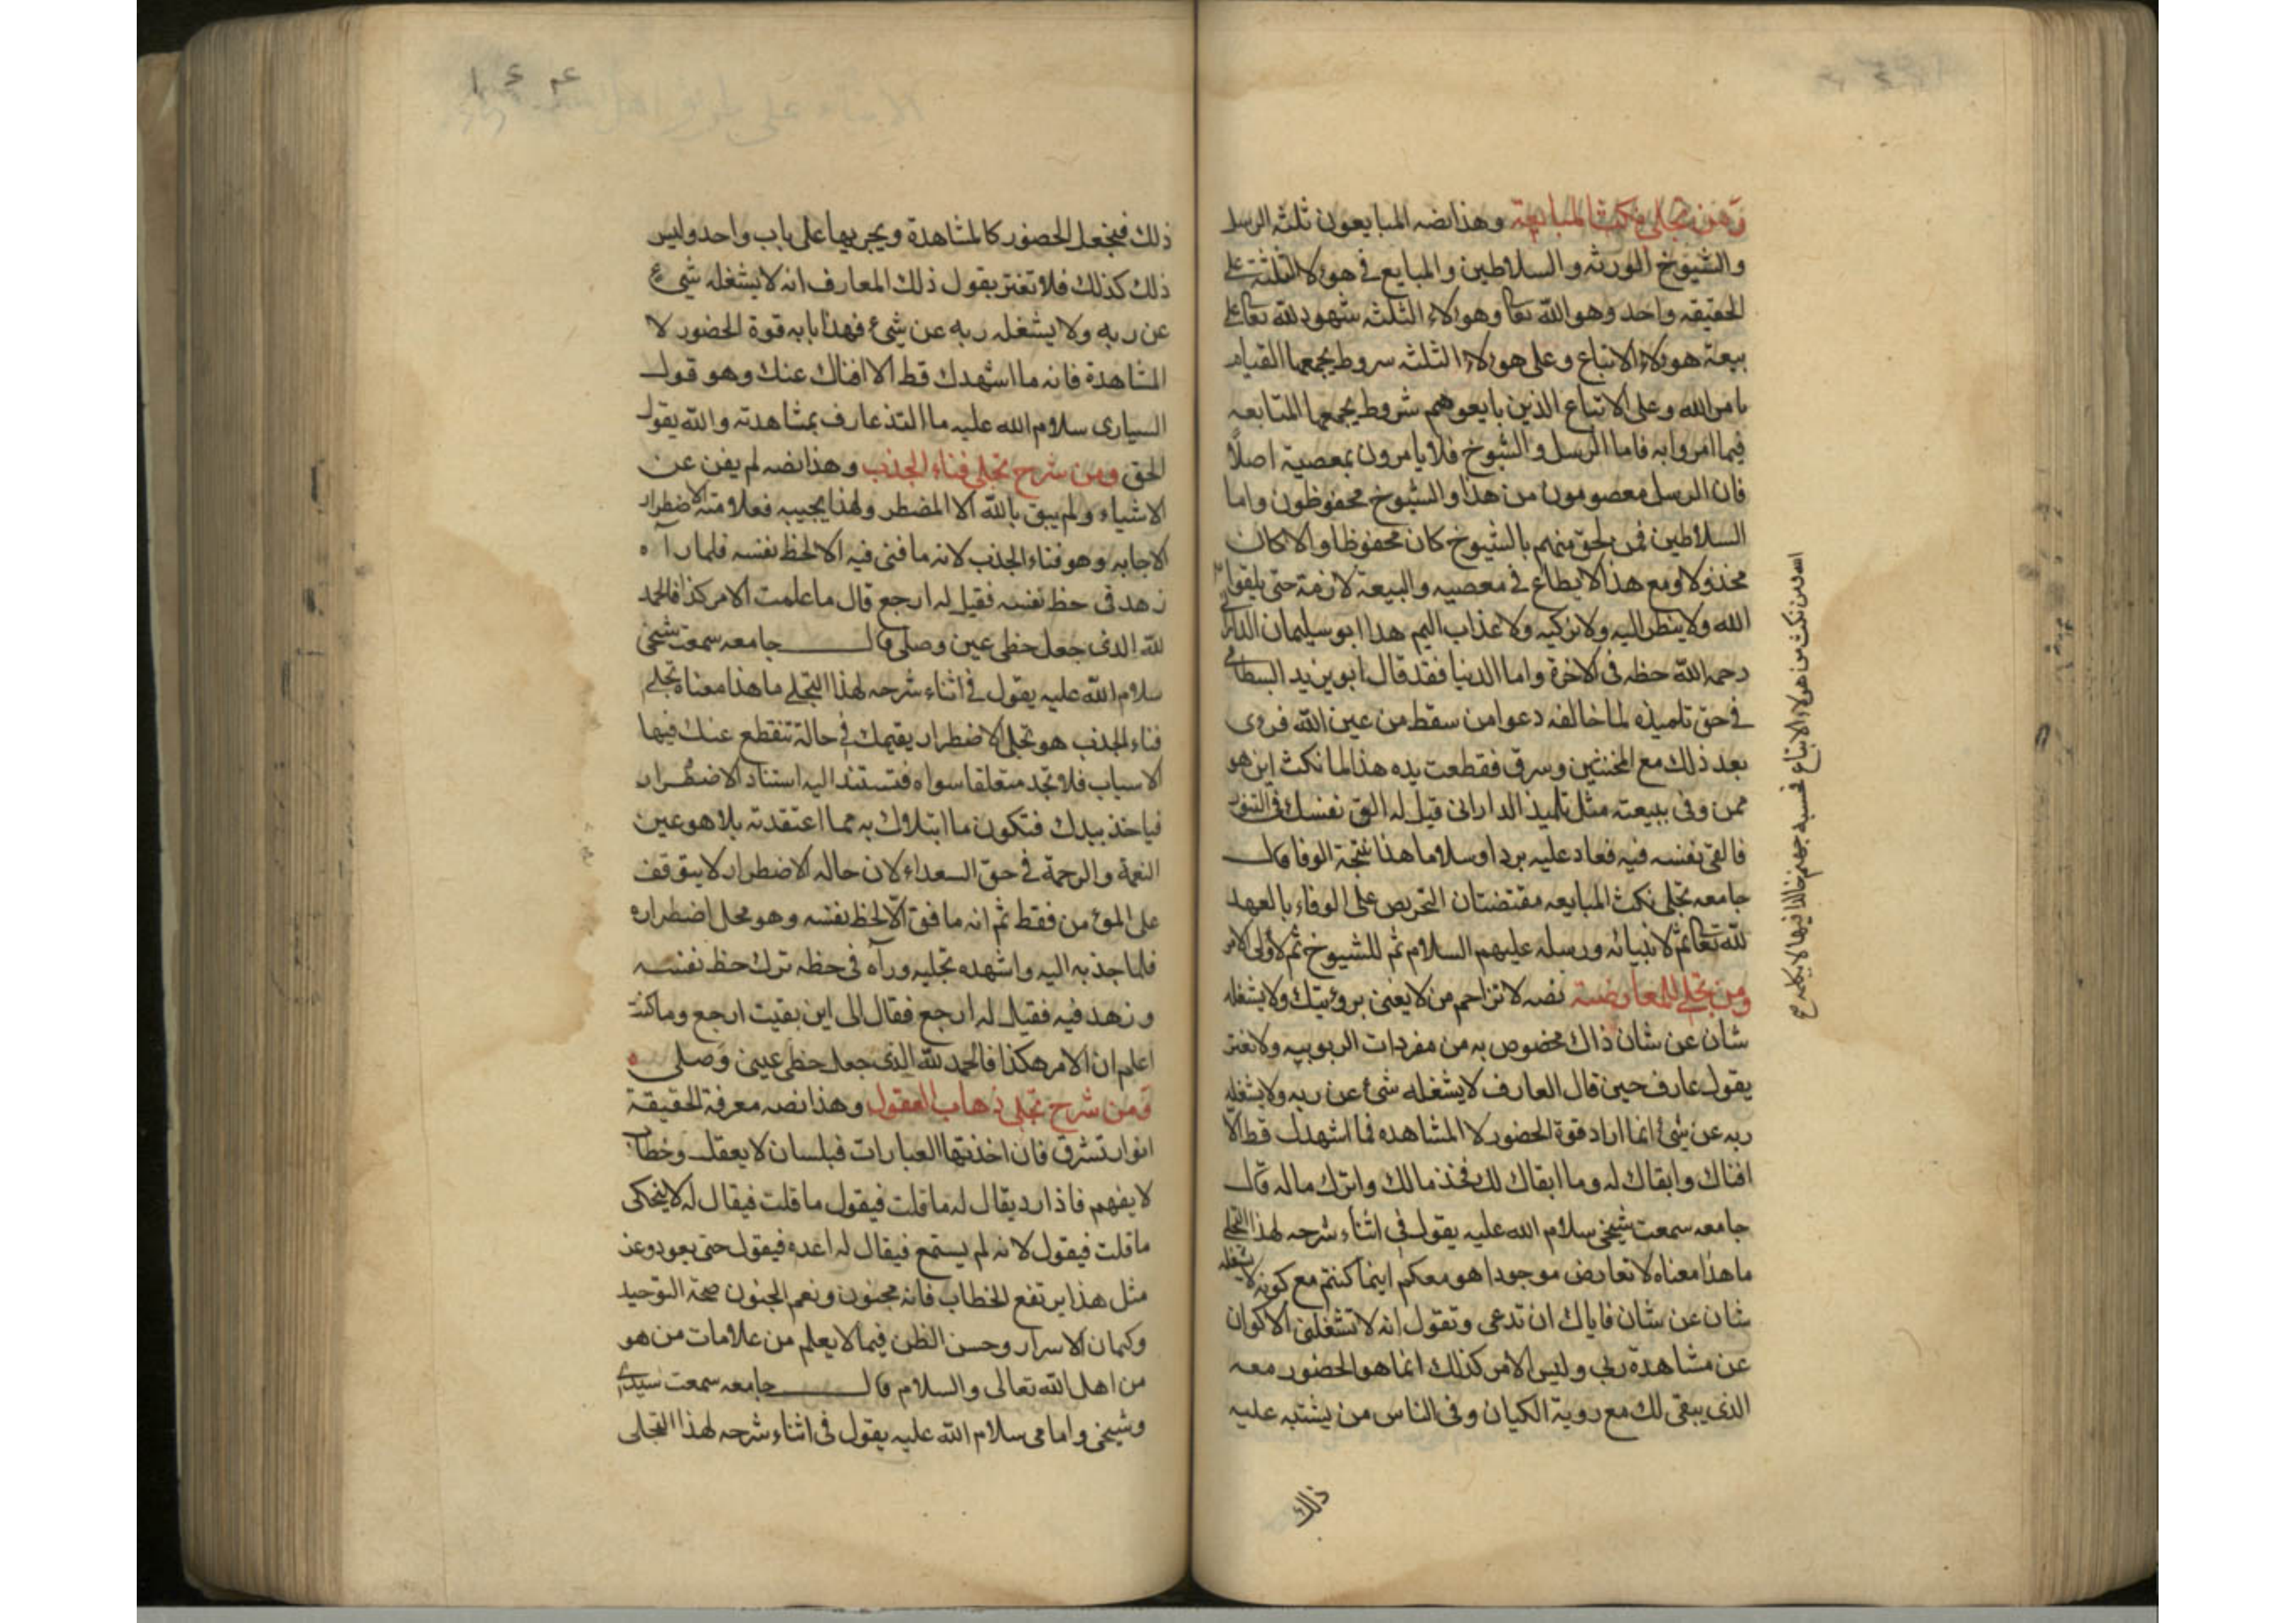 ومن تجلي نكث المبايعة وهذا نصه المبايعون ثلثه الرسل
والشيوخ الورثه والسلاطين والمبايع في هولا الثلثة على
الحقيقه واحد وهو الله تعا وهولاء الثلثه شهود لله تعا على
بيعة هولاء الاتباع وعلى هولاء الثلثه شروط يجمعها القيام
بامر الله وعلى الاتباع الذين بايعوهم شروط يجمعها المتابعه
فيما امروا به فاما الرسل والشيوخ فلا يامرون بمعصية اصلا
فان الرسل معصومون من هذا والشيوخ محفوظون واما
السلاطين فمن لحق منهم بالشيوخ كان محفوظا والا كان
مخذولا ومع هذا لا يطاع في معصيه والبيعة لازمة حتى يلقوا
الله ولا ينظر اليه ولا يزكيه ولا عذاب اليم هذا ابو سليمان الداراني
رحمه الله حظه في الاخرة واما الدنيا فقد قال ابو يزيد البسطامي
في حق تلميذه لما خالفه دعوا من سقط من عين الله فروى
بعد ذلك مع المخنثين وسرق فقطعت يده هذا لما نكث اين هو
ممن وفى ببيعته مثل تلميذ الداراني قيل له الق نفسك في التنور
فالقى نفسه فيه فعاد عليه بردا وسلاما هذا نتيجة الوفا قال
جامعه تجلي نكث المبايعه مقتضتان التحريص على الوفاء بالعهد
لله تعا ثم لانبيائه ورسله عليهم السلام ثم للشيوخ ثم لاولى الامر
ومن تجلي المعارضة نصه لا تزاحم من لا يغنى برؤيتك ولا يشغله
شان عن شان ذاك مخصوص به من مفردات الربوبيه ولا تغتر
بقول عارف حين قال العارف لا يشغله شئ عن ربه ولا يشغله
ربه عن شئ انما اراد قوة الحضور لا المشاهده فما اشهدك قط الا
افناك وابقاك له وما ابقاك لك فخذ مالك واترك ماله قال
جامعه سمعت شيخي سلام الله عليه يقول في اثناء شرحه لهذا التجلي
ما هذا معناه لا تعارض موجودا هو معكم اينما كنتم مع كونه لا يشغله
شان عن شان فاياك ان تدعى وتقول انه لا تشغلني الاكوان
عن مشاهدة ربي وليس الامر كذلك انما هو الحضور معه
الذي يبقى لك مع روية الكيان وفي الناس من يشتبه عليه
ذلك
ومن نكث من هولاء الاتباع فحسبه جهنم خالدا فيها لا يكلمه
ذلك فيجعل الحضور كالمشاهدة ويجريها على باب واحد وليس
ذلك كذلك فلا تغتر بقول ذلك المعارف انه لا يشغله شيء
عن ربه ولا يشغله ربه عن شيء فهذا بابه قوة الحضور لا
المشاهدة فانه ما اشهدك قط الا افناك عنك وهو قول
السيارى سلام الله عليه ما التذ عارف بمشاهدته والله يقول
الحق ومن شرح تجلي فناء الجذب وهذا نصه لم يفن عن
الاشياء ولم يبق بالله الا المضطر ولهذا يجيبه فعلامة الاضطرار
الاجابه وهو فناء الجذب لانه ما فنى فيه الا لحظ نفسه فلما رآه
زهد في حظ نفسه فقيل له ارجع قال ما علمت الامر كذا فالحمد
لله الذي جعل حظي عين وصلي قال جامعه سمعت شيخي
سلام الله عليه يقول في اثناء شرحه لهذا التجلي ما هذا معناه تجلي
فناء الجذب هو تجلي الاضطرار يقيمك في حالة تنقطع عنك فيها
الاسباب فلا تجد متعلقا سواه فتستند اليه استناد الاضطرار
فياخذ بيدك فتكون ما ابتلاك به مما اعتقدته بلا هو عين
النعمة والرحمة في حق السعداء لان حاله الاضطرار لا يتوقف
على المؤمن فقط ثم انه ما فنى الا لحظ نفسه وهو محل اضطراره
فلما جذبه اليه واشهده تجليه ورآه في حظه ترك حظ نفسه
وزهد فيه فقيل له ارجع فقال الى اين بقيت ارجع وما كنت
اعلم ان الامر هكذا فالحمد لله الذي جعل حظي عيني وصلي
ومن شرح تجلي ذهاب العقول وهذا نصه معرفة الحقيقة
انوار تشرق فان اخذتها العبارات فبلسان لا يعقل وخطاب
لا يفهم فاذا رد يقال له ما قلت فيقول ما قلت فيقال له لا ينحكى
ما قلت فيقول لانه لم يستمع فيقال له اعده فيقول حتى يعود وعن
مثل هذا يرتفع الخطاب فانه مجنون ونعم الجنون صحة التوحيد
وكتمان الاسرار وحسن الظن فيما لا يعلم من علامات من هو
من اهل الله تعالى والسلام قال جامعه سمعت سيدي
وشيخي وامامي سلام الله عليه يقول في اثناء شرحه لهذا التجلي